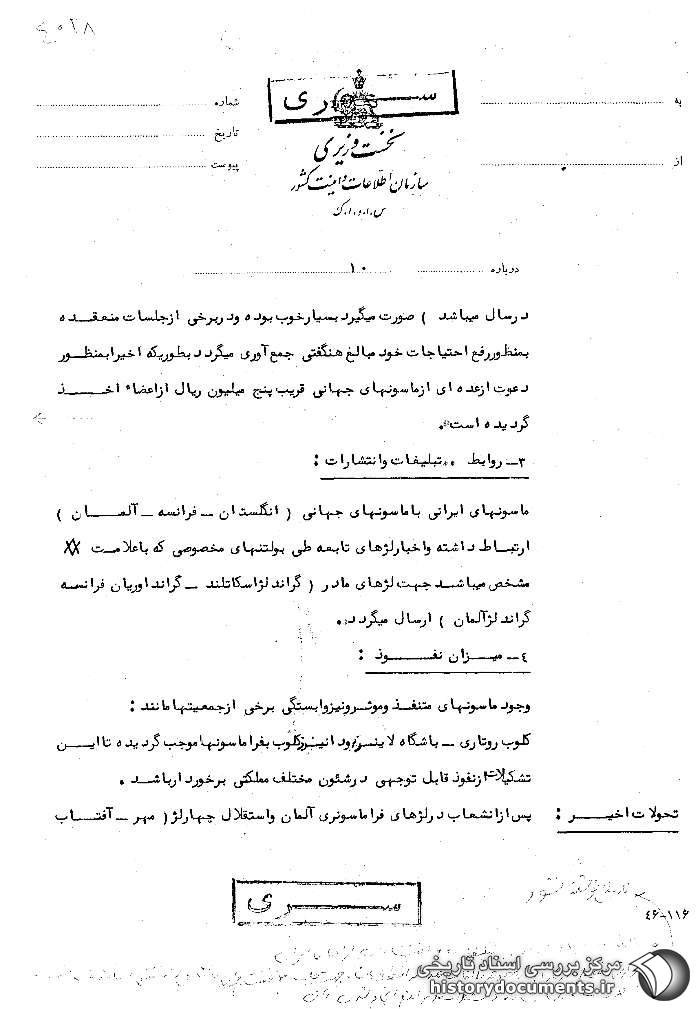 ٤٠٢٨
سری
به
شماره
تاریخ
از
پیوست
نخست وزیری
سازمان اطلاعات و امنیت کشور
س.ا.و.ا.ک
درباره ۱۰
درسال میباشد ) صورت میگیرد بسیارخوب بوده ودربرخی ازجلسات منعقده
بمنظوررفع احتیاجات خود مبالغ هنگفتی جمع آوری میگردد بطوریکه اخیرابمنظور
دعوت ازعده ای ازماسونهای جهانی قریب پنج میلیون ریال ازاعضاء اخذ
گردیده است.
۳ــ روابط ..تبلیغات وانتشارات :
ماسونهای ایرانی باماسونهای جهانی ( انگلستان ــ فرانسه ــ آلمان )
ارتباط داشته واخبارلژهای تابعه طی بولتنهای مخصوصی که باعلامت XX
مشخص میباشد جهت لژهای مادر ( گراند لژاسکاتلند ــ گراند اوریان فرانسه
گراند لژآلمان ) ارسال میگردد.
٤ــ میزان نفوذ :
وجود ماسونهای متنفذ وموثرونیزوابستگی برخی ازجمعیتهامانند :
کلوب روتاری ــ باشگاه لاینز ودانیرزکلوب بفراماسونهاموجب گردیده تااین
تشکیلات ازنفوذ قابل توجهی درشئون مختلف مملکتی برخوردارباشد .
تحولات اخیر : پس ازانشعاب درلژهای فراماسونری آلمان واستقلال چهارلژ( مهر ــ آفتاب
سری
٤٦-۱۱۶
مرکز بررسی اسناد تاریخی
historydocuments.ir